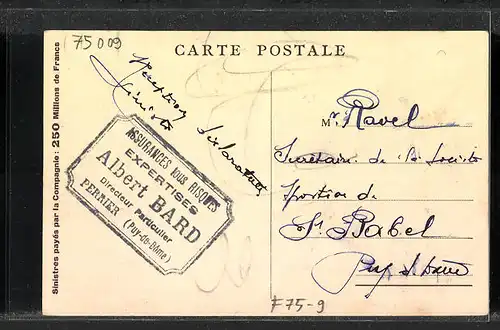 75 009
CARTE POSTALE
Sinistres payés par la Compagnie: 250 Millions de Francs
Réception déclaration
Sinistre
ASSURANCES TOUS RISQUES
EXPERTISES
Albert BARD
Directeur Particulier
PERRIER (Puy-de-Dôme)
Mr Ravel
Secrétaire de la Société
de
St Babel
Puy d Dôme
F75-9